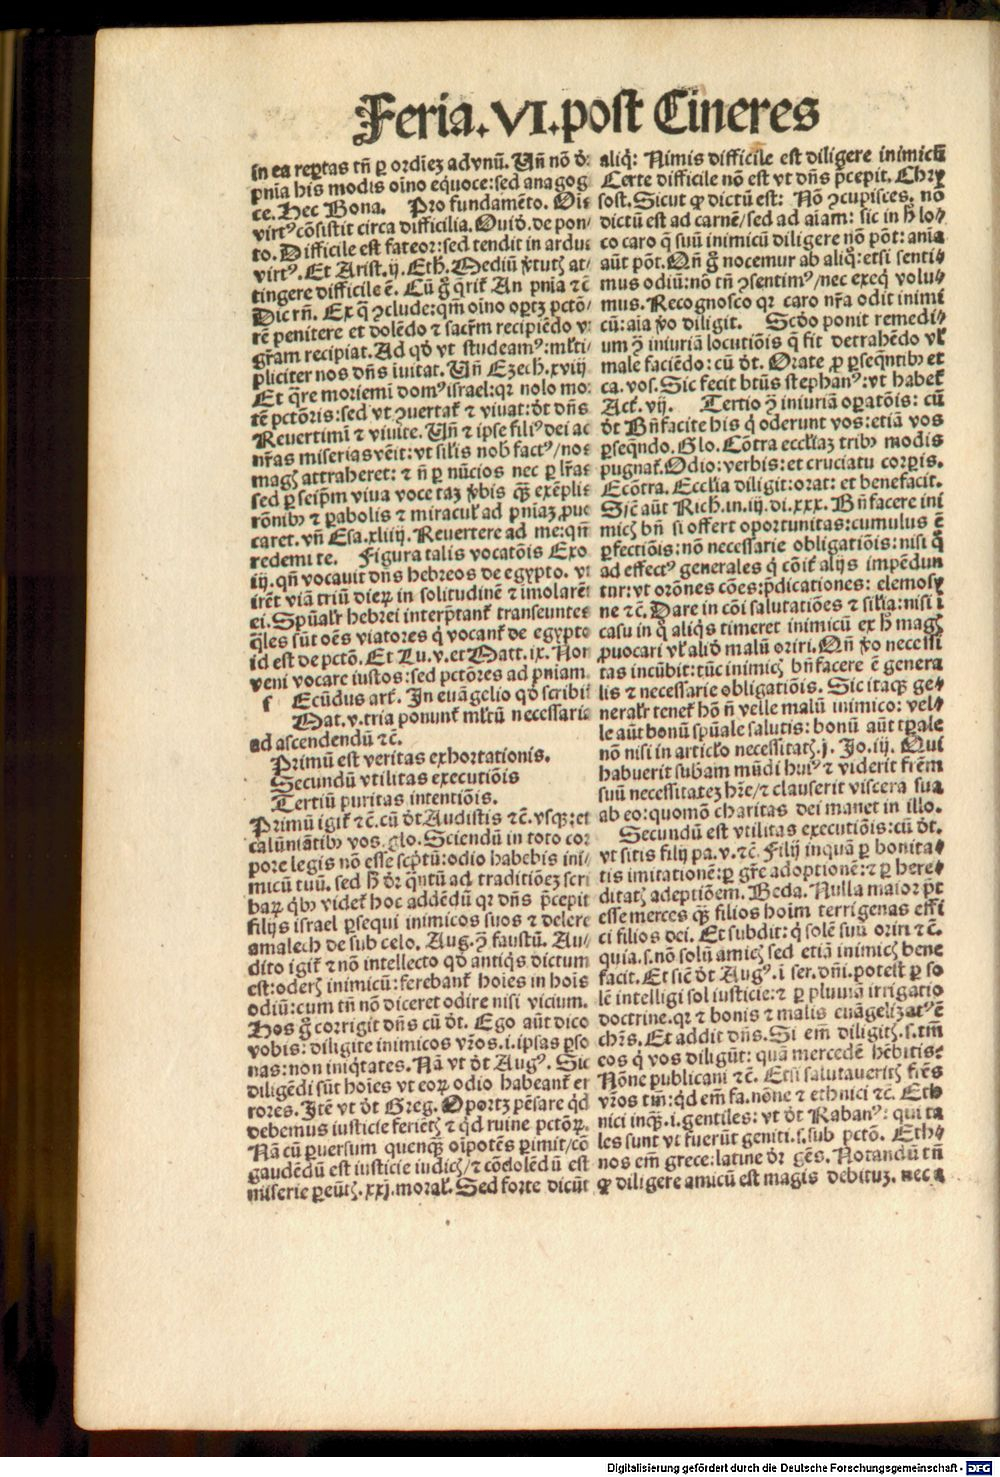 Feria.VI.post Cineres
in ea reptas tñ ꝑ ordīeꝫ ad vnū. Uñ nō ꝺ̄:
pn̄ia his modis oīno equoce: sed anagog
ce. Hec Bona. Pro fundamēto. Oīs
virtꝰ cōsistit circa difficilia. Ouiꝺ̄. de pon-
to. Difficile est fateor: sed tendit in ardua
virtꝰ. Et Arist. ij. Eth. Mediū v̄tutꝭ at-
tingere difficile ē. Cū g̊ q̄rit̄ An pn̄ia ⁊ c̄
Dic rñ. Ex q̄ ꝯclude: qm̄ oīno oportꝫ pctō-
rē penitere et dolēdo ⁊ sacr̄m recipiēdo v:
gr̄am recipiat. Ad qd̄ vt studeamꝰ: ml̄ti-
pliciter nos dñs inuitat. Uñ Ezech. xviij
Et q̄re moriemī domꝰ israel: qꝛ nolo mo:
tē pctōris: sed vt ꝯuertat̄ ⁊ viuat: ꝺ̄t dñs
Reuertimī ⁊ viuite. Uñ ⁊ ipse filiꝰ dei ac
nr̄as miserias vēit: vt sil̄is nob̄ factꝰ/nos
magꝭ attraheret: ⁊ ñ ꝑ nūcios nec ꝑ lr̄as
sed ꝑ seip̄m viua voce taꝫ v̄bis qꝫ̄ exēplis
rōnibꝰ ⁊ ꝑabolis ⁊ miracul̄ ad pn̄iaꝫ ꝓuo
caret. vñ Esa. xliiij. Reuertere ad me: qm̄
redemi te. Figura talis vocatōis Exo
iij. qñ vocauit dñs hebreos de egypto. vt
irēt viā triū dieꝝ in solitudinē ⁊ imolarēt
ei. Sp̄ual̄r hebrei interp̄tant̄ transeuntes
q̄les sūt oēs viatores q̇ vocant̄ de egypto
id est de pctō. Et Lu. v. et Matt. ix. Non
veni vocare iustos: sed pctōres ad pn̄iam.
s Ecūdus art̄. In euāgelio qd̄ scribit̄
Mat. v. tria ponunt̄ ml̄tū necessaria
ad ascendendū ⁊c̄.
Primū est veritas exhortationis.
Secundū vtilitas executiōis
Tertiū puritas intentiōis.
Primū igit̄ ⁊c̄. cū ꝺ̄t Audistis ⁊c̄. vsqꝫ: et
calūniātibꝰ vos. glo. Sciendū in toto cor
pore legis nō esse scp̄tū: odio habebis ini/
micū tuū. sed h̄ ꝺ̄r q̄ntū ad traditiōeꝫ scri
baꝝ q̇bꝰ videt̄ hoc addēdū qꝛ dñs p̄cepit
filijs israel ꝑsequi inimicos suos ⁊ delere
amalech de sub celo. Aug. ꝯ̄ faustū. Au/
dito igit̄ ⁊ nō intellecto qd̄ antiq̇s dictum
est: oderꝭ inimicū: ferebant̄ hoīes in hoīs
odiū: cum tñ nō diceret odire nisi vicium.
Hos g̊ corrigit dñs cū ꝺ̄t. Ego aūt dico
vobis: diligite inimicos vr̄os. i. ipsas ꝑso
nas: non iniq̇tates. Nā vt ꝺ̄t Augꝰ. Sic
diligēdi sūt hoīes vt eoꝝ odio habeant̄ er
rores. Itē vt ꝺ̄t Greg. Oportꝫ pēsare qd̄
debemus iusticie feriētꝭ ⁊ qd̄ ruine pctōꝝ.
Nā cū ꝑuersum quenqꝫ̄ oīpotēs ꝑimit/cō
gaudēdū est iusticie iudicꝭ/⁊ cōdolēdū est
miserie ꝑeūtꝭ. xxj. moral̄. Sed forte dicūt
aliq̇: Nimis difficile est diligere inimicū
Certe difficile nō est vt dñs p̄cepit. Chry
sost. Sicut ꝙ dictū est: Nō ꝯcupisces. nō
dictū est ad carnē/sed ad aīam: sic in h̄ lo/
co caro q̄ suū inimicū diligere nō pōt: anīa
aūt pōt. Qñ g̊ nocemur ab aliq̇: etsi senti/
mus odiū: nō tñ ꝯsentimꝰ/nec exeq̇ volu/
mus. Recognosco qꝛ caro nr̄a odit inimi
cū: aīa v̄o diligit. Scd̄o ponit remedi/
um ꝯ̄ iniuriā locutiōis q̄ fit detrahēdo vl̄
male faciēdo: cū ꝺ̄t. Orate ꝓ ꝑseq̄ntibꝰ et
ca. vos. Sic fecit btūs stephanꝰ: vt habet̄
Act̄. vij. Tertio ꝯ̄ iniuriā oꝑatōis: cū
ꝺ̄t Bñfacite his q̇ oderunt vos: etiā vos
ꝑseq̄ndo. Glo. Cōtra eccl̄iaꝫ tribꝰ modis
pugnat̄. Odio: verbis: et cruciatu corꝑis.
Ecōtra. Eccl̄ia diligit: orat: et benefacit.
Sic̄ aūt Rich. in. iij. di. xxx. Bñfacere ini
micꝭ bñ si offert oportunitas: cumulus ē
ꝑfectiōis: nō necessarie obligatiōis: nisi q̇
ad effectꝰ generales q̇ cōit̄ alijs impēdun
tur: vt orōnes cōes: p̄dicationes: elemosy
ne ⁊ c̄. Dare in cōi salutatiōes ⁊ sil̄ia: nisi ī
casu in q̇ aliq̇s timeret inimicū ex h̄ magꝭ
ꝓuocari vl̄ aliꝺ̄ malū oriri. Qñ v̄o necessi
tas incūbit: tūc inimicꝭ bñfacere ē genera
lis ⁊ necessarie obligatiōis. Sic itaqꝫ ge/
neral̄r tenet̄ hō ñ velle malū inimico: vel/
le aūt bonū sp̄uale salutis: bonū aūt tp̄ale
nō nisi in articl̄o necessitatꝭ. j. Jo. iij. Qui
habuerit subam mūdi huiꝰ ⁊ viderit fr̄em
suū necessitateꝫ hr̄e/⁊ clauserit viscera sua
ab eo: quomō charitas dei manet in illo.
Secundū est vtilitas executiōis: cū ꝺ̄t.
vt sitis filij pa. v. ⁊c̄. Filij inquā ꝑ bonita/
tis imitationē: ꝑ gr̄e adoptionē: ⁊ ꝑ here/
ditatꝭ adeptiōem. Beda. Nulla maior p̄t
esse merces qꝫ̄ filios hoīm terrigenas effi
ci filios dei. Et subdit: q̇ solē suū oriri ⁊ c̄.
quia. s. nō solū amicꝭ sed etiā inimicꝭ bene
facit. Et sic̄ ꝺ̄t Augꝰ. ī ser. dñi. potest ꝑ so
lē intelligi sol iusticie: ⁊ ꝑ pluuiā irrigatio
doctrine. qꝛ ⁊ bonis ⁊ malis euāgelizatꝰ ē
chr̄s. Et addit dñs. Si em̄ diligitꝭ. s. tm̄
eos q̇ vos diligūt: quā mercedē hēbitis:
Nōne publicani ⁊c̄. Etsi salutaueritꝭ fr̄es
vr̄os tm̄: qd̄ em̄ fa. nōne ⁊ ethnici ⁊c̄. Eth
nici inqꝫ̄. i. gentiles: vt ꝺ̄t Rabanꝰ: qui ta
les sunt vt fuerūt geniti. s. sub pctō. Eth/
nos em̄ grece: latine ꝺ̄r gēs. Notandū tñ
ꝙ diligere amicū est magis debituꝫ. nec a
Digitalisierung gefördert durch die Deutsche Forschungsgemeinschaft - DFG